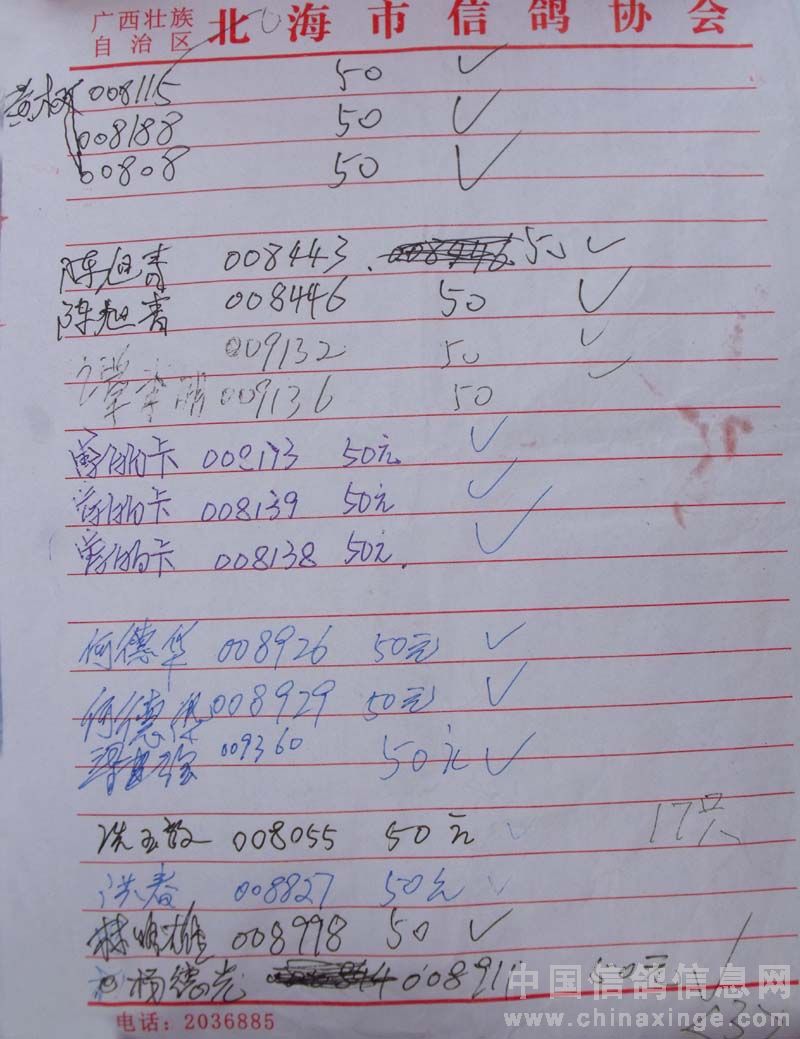 广西壮族
自治区 北海市信鸽协会
008115 50 ✓
008188 50 ✓
00808 50 ✓
陈旭青 008443 50 ✓
陈旭青 008446 50 ✓
009132 50 ✓
009136 50 ✓
卡 50元 ✓
卡 008139 50元 ✓
卡 008138 50元. ✓
何德华 008926 50元 ✓
何德华 008929 50元 ✓
009360 50元 ✓
008055 50元 ✓ 17只
洪春 008827 50元 ✓
林明雄 008998 50 ✓
杨德光 00891 50元 ✓
中国信鸽信息网
电话：2036885
www.chinaxinge.com